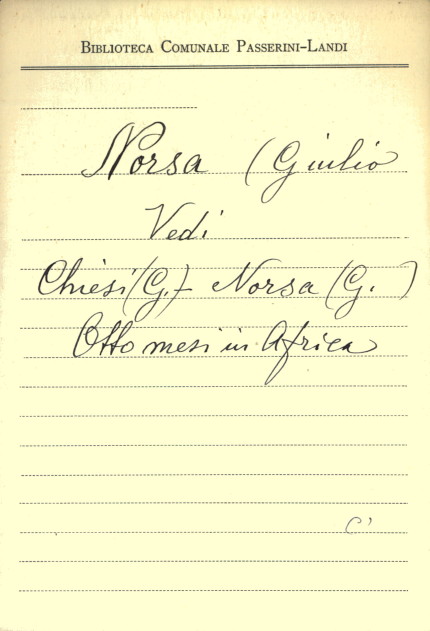 BIBLIOTECA COMUNALE PASSERINI-LANDI
Norsa (Giulio
Vedi
Chiesi (G.) - Norsa (G.)
Otto mesi in Africa